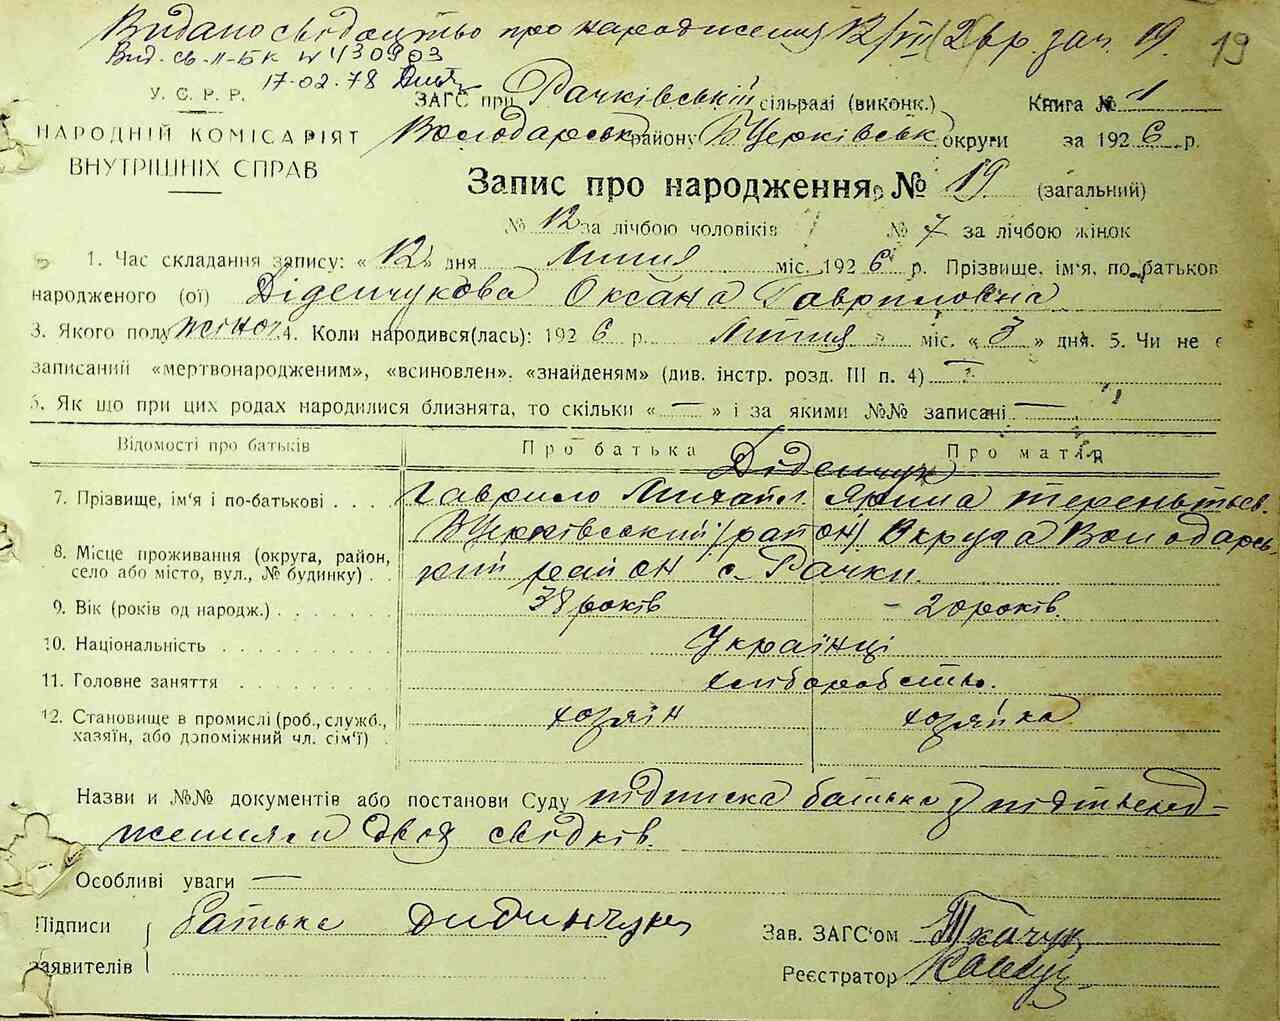 Видано свідоцтво про народження 12/VII 26 р. зач. 19. 19
Вид. св. II-БК № 430903
17-02-78
У. С. Р. Р. ЗАГС при Рачківській сільраді (виконк.) Книга № 1
НАРОДНІЙ КОМІСАРІЯТ Володарськ району Б Церківськ округи за 1926 р.
ВНУТРІШНІХ СПРАВ
Запис про народження № 19 (загальний)
№ 12 за лічбою чоловіків № 7 за лічбою жінок
1. Час складання запису: « 12 » дня Липня міс. 1926 р. Прізвище, ім'я, по батькові
народженого (ої) Діденчукова Оксана Гавриловна
3. Якого полу жіноч. 4. Коли народився(лась): 1926 р. Липня міс. « 3 » дня. 5. Чи не є
записаний «мертвонародженим», «всиновлен», «знайденям» (див. інстр. розд. III п. 4) —
6. Як що при цих родах народилися близнята, то скільки « — » і за якими №№ записані —
Відомості про батьків Про батька Про матір
Діденчук
7. Прізвище, ім'я і по-батькові Гаврило Михайл. Ярина Терентьев.
8. Місце проживання (округа, район, село або місто, вул., № будинку) БЦерківський /район/ Округа Володарсь
кий район с. Рачки.
9. Вік (років од народж.) 38 років – 20 років.
10. Національність Українці
11. Головне заняття хліборобство.
12. Становище в промислі (роб., служб., хазяїн, або допоміжний чл. сім'ї) хозяїн хозяйка
Назви и №№ документів або постанови Суду підписка батька з підтверд–
женням двох свідків.
Особливі уваги —
Підписи Батька Дидинчук
заявителів
Зав. ЗАГС'ом Ткачук
Реєстратор